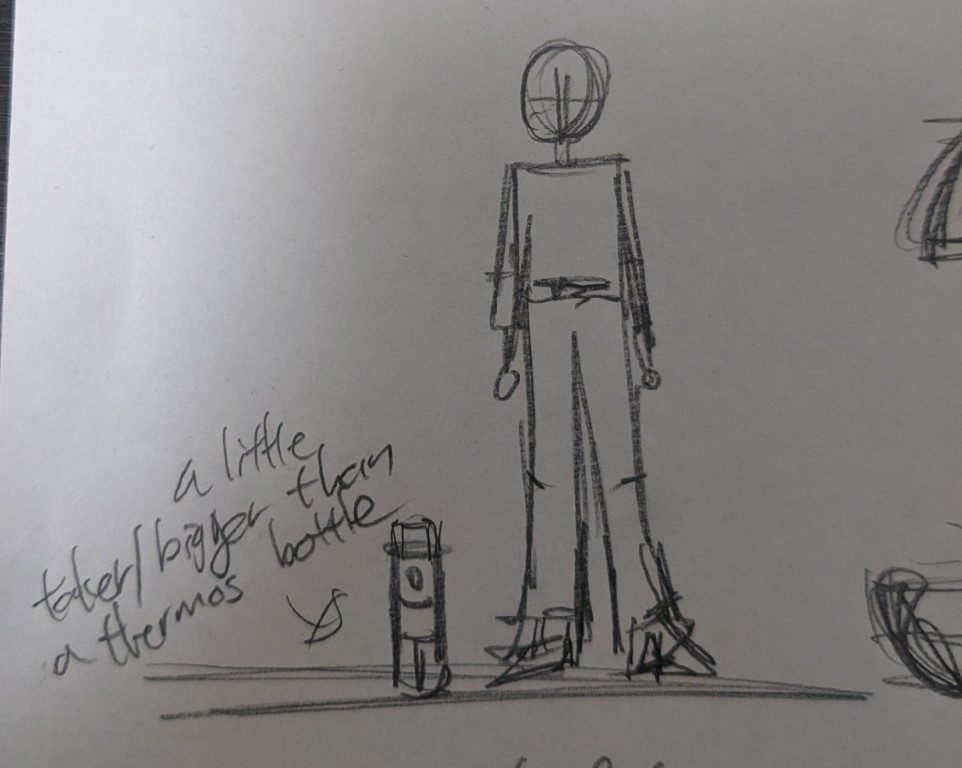 a little
taker/bigger than
a thermos bottle